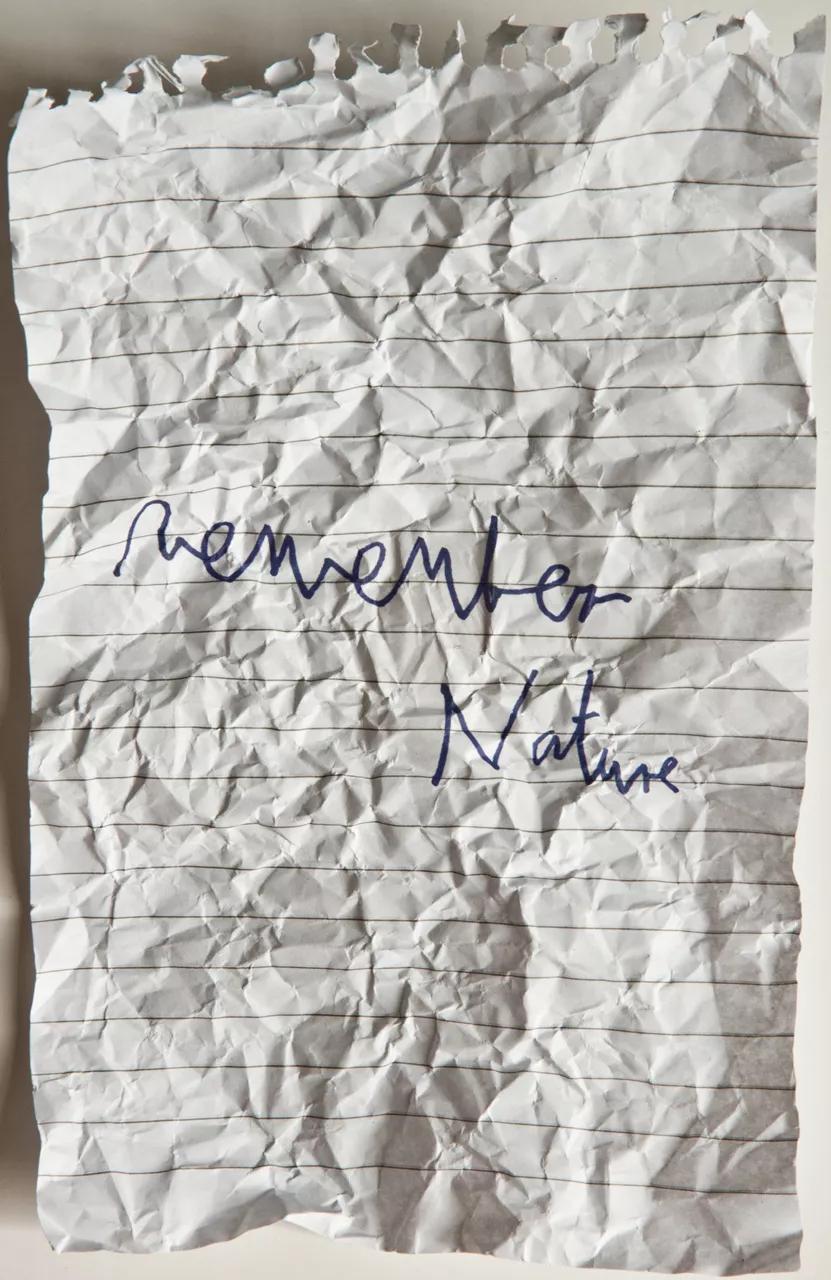 remember
Nature